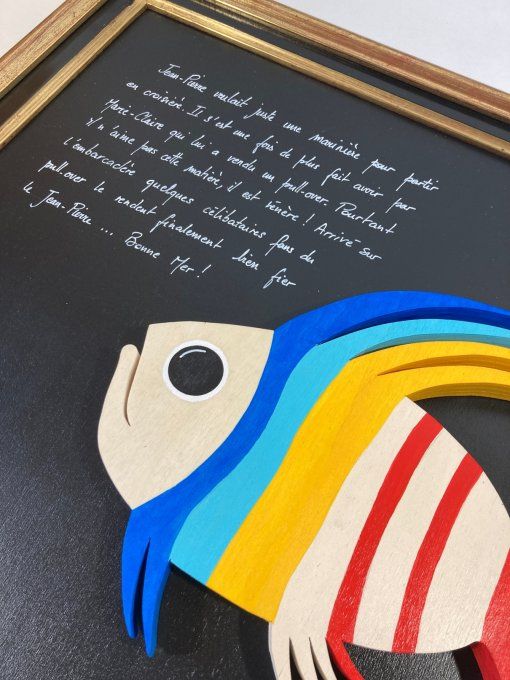 Jean-Pierre voulait juste une marinière pour partir
en croisière. Il s'est une fois de plus fait avoir par
Marie-Claire qui lui a vendu un pull-over. Pourtant
il n'aime pas cette matière, il est vénère ! Arrivé sur
l'embarcadère quelques célibataires fans du
pull-over le rendent finalement bien fier
le Jean-Pierre ... Bonne Mer !